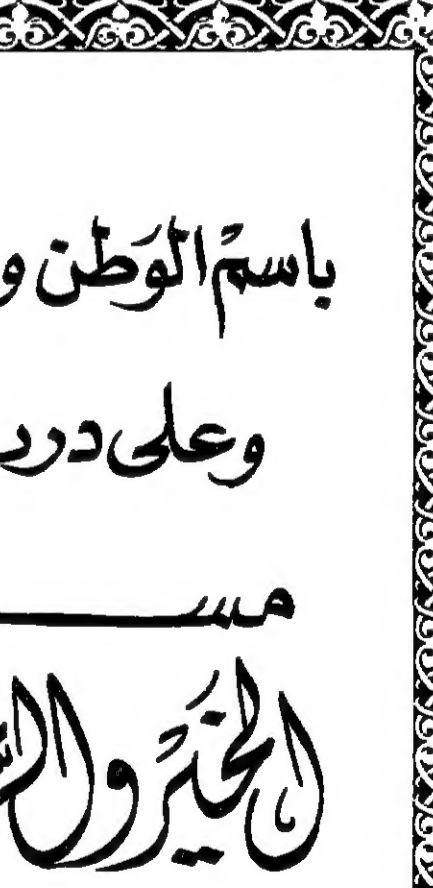 باسْم الوَطن و
وعلى درر
مســـــــ
الخَيْر والس